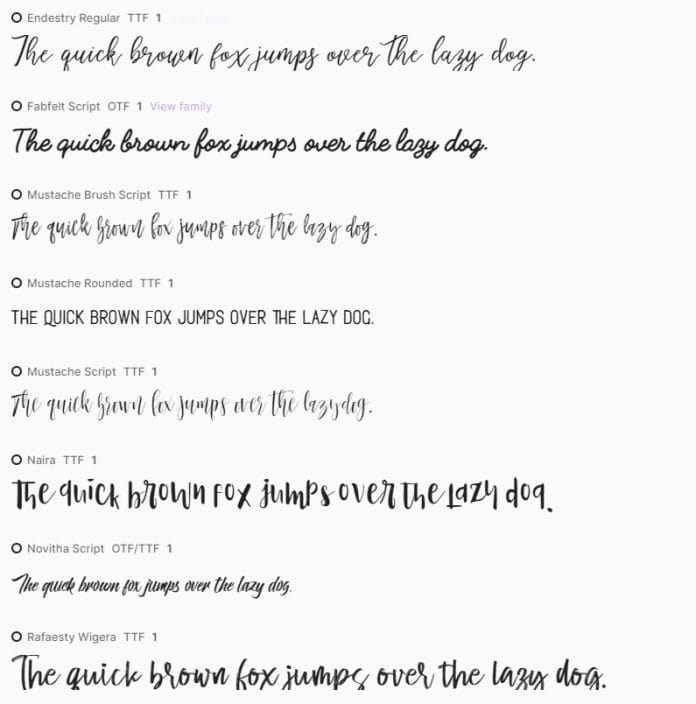 Endestry Regular TTF 1 View family
The quick brown fox jumps over the lazy dog.
Fabfelt Script OTF 1 View family
The quick brown fox jumps over the lazy dog.
Mustache Brush Script TTF 1
The quick brown fox jumps over the lazy dog.
Mustache Rounded TTF 1
THE QUICK BROWN FOX JUMPS OVER THE LAZY DOG.
Mustache Script TTF 1
The quick brown fox jumps over the lazy dog.
Naira TTF 1
The quick brown fox jumps over the lazy dog.
Novitha Script OTF/TTF 1
The quick brown fox jumps over the lazy dog.
Rafaesty Wigera TTF 1
The quick brown fox jumps over the lazy dog.